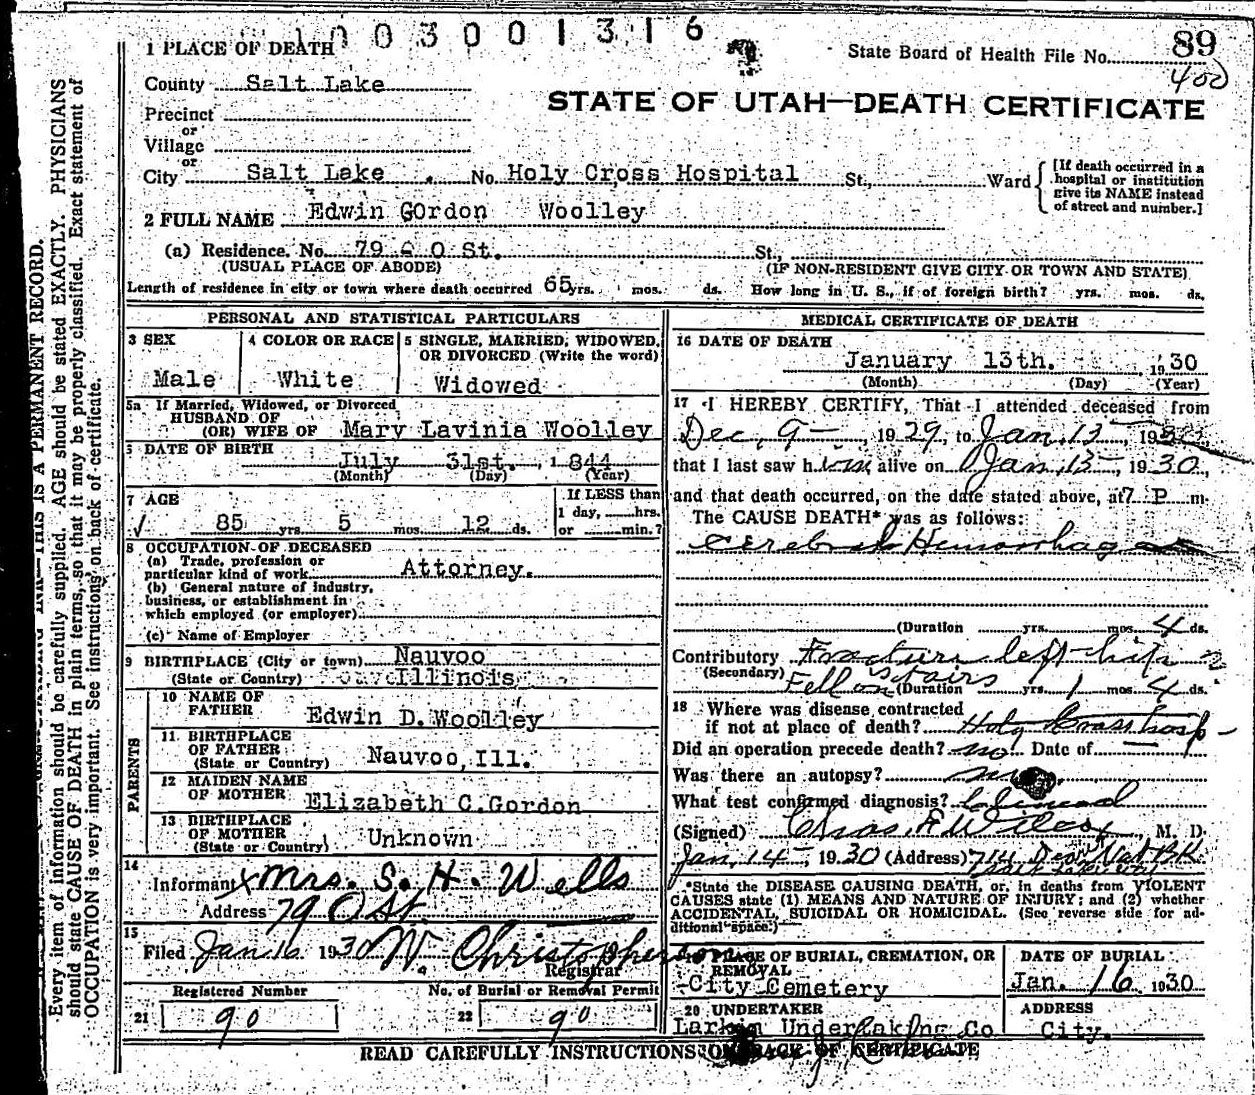 1003001316
1 PLACE OF DEATH
State Board of Health File No. 89
400
County Salt Lake
STATE OF UTAH—DEATH CERTIFICATE
Precinct
or
Village
or
City Salt Lake. No. Holy Cross Hospital St., Ward
[If death occurred in a hospital or institution give its NAME instead of street and number.]
2 FULL NAME Edwin GOrdon Woolley
(a) Residence. No. 79 O St. St.,
(USUAL PLACE OF ABODE) (IF NON-RESIDENT GIVE CITY OR TOWN AND STATE)
Length of residence in city or town where death occurred 65 yrs. mos. ds. How long in U. S., if of foreign birth? yrs. mos. ds.
PERSONAL AND STATISTICAL PARTICULARS
3 SEX
Male
4 COLOR OR RACE
White
5 SINGLE, MARRIED, WIDOWED, OR DIVORCED (Write the word)
Widowed
5a If Married, Widowed, or Divorced
HUSBAND OF
(OR) WIFE OF Mary Lavinia Woolley
6 DATE OF BIRTH
July 31st., 1844
(Month) (Day) (Year)
7 AGE
85 yrs. 5 mos. 12 ds.
If LESS than
1 day, hrs.
or min.?
8 OCCUPATION OF DECEASED
(a) Trade, profession or
particular kind of work Attorney.
(b) General nature of industry,
business, or establishment in
which employed (or employer)
(c) Name of Employer
9 BIRTHPLACE (City or town) Nauvoo
(State or Country) Illinois
PARENTS
10 NAME OF
FATHER Edwin D. Woolley
11 BIRTHPLACE
OF FATHER
(State or Country) Nauvoo, Ill.
12 MAIDEN NAME
OF MOTHER Elizabeth C. Gordon
13 BIRTHPLACE
OF MOTHER
(State or Country) Unknown
14
Informant x Mrs. S. H. Wells
Address 79 O St.
15
Filed Jan 16 1930 W. Christopherson
Registrar
Registered Number No. of Burial or Removal Permit
21 90 22 90
MEDICAL CERTIFICATE OF DEATH
16 DATE OF DEATH
January 13th., 1930
(Month) (Day) (Year)
17 I HEREBY CERTIFY, That I attended deceased from
Dec, 9, 1929, to Jan, 13, 1930,
that I last saw him alive on Jan, 13, 1930,
and that death occurred, on the date stated above, at 7 P m.
The CAUSE DEATH* was as follows:
Cerebral Hemorrhage
(Duration yrs. mos. 4 ds.
Contributory Fracture left hip
(Secondary) Fell on stairs
(Duration yrs. 1 mos. 4 ds.
18 Where was disease contracted
if not at place of death? Holy Cross Hosp
Did an operation precede death? no Date of —
Was there an autopsy? no
What test confirmed diagnosis? Clinical
(Signed) Chas. F Wilcox, M. D.
Jan, 14, 1930 (Address) 714 Des Nat BK
Salt Lake City
*State the DISEASE CAUSING DEATH, or, in deaths from VIOLENT
CAUSES state (1) MEANS AND NATURE OF INJURY; and (2) whether
ACCIDENTAL, SUICIDAL OR HOMICIDAL. (See reverse side for ad-
ditional space.)
19 PLACE OF BURIAL, CREMATION, OR
REMOVAL
City Cemetery
DATE OF BURIAL
Jan. 16 1930
20 UNDERTAKER
Larkin Undertaking Co
ADDRESS
City.
READ CAREFULLY INSTRUCTIONS ON BACK OF CERTIFICATE
THIS IS A PERMANENT RECORD.
Every item of information should be carefully supplied. AGE should be stated EXACTLY. PHYSICIANS
should state CAUSE OF DEATH in plain terms, so that it may be properly classified. Exact statement of
OCCUPATION is very important. See instructions on back of certificate.